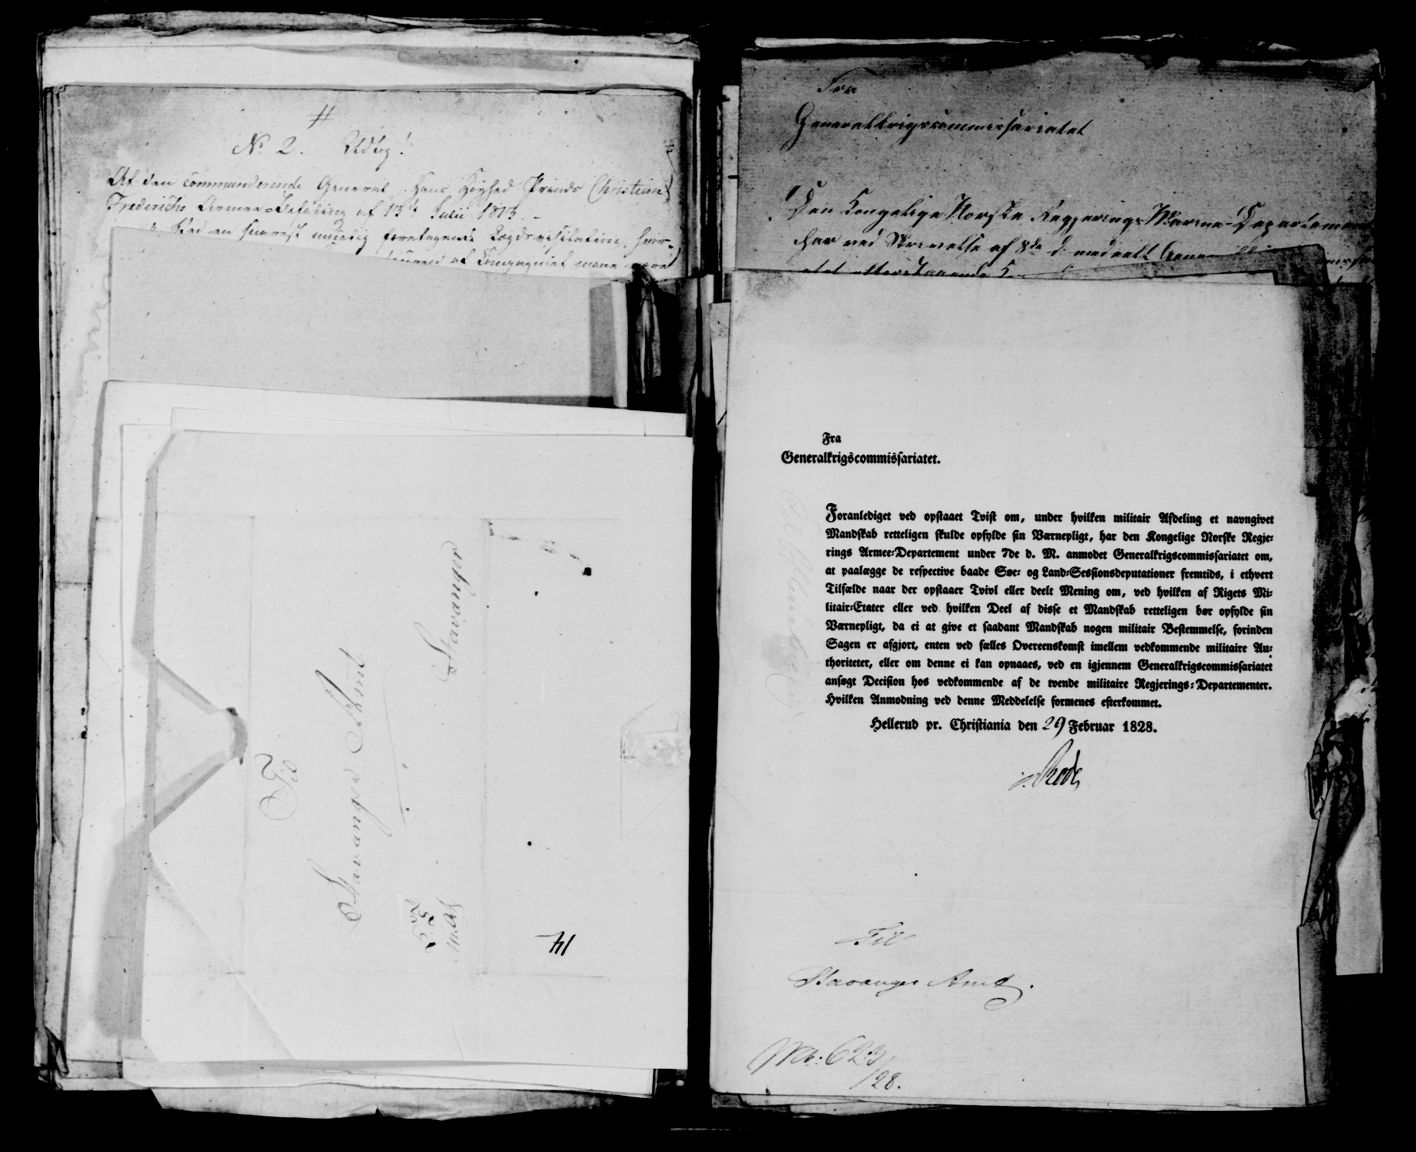 #
No 2. Udtog!
Af den commanderende General, Hans Høyhed Prinds Christian
Frederichs Armee-Befaling af 13de Julii 1813.
Ved en snarest muelig foretagende Lagdsvisitation,
af Compagniet
Til
Stavanger Amt
Stavanger
14
Fra
Generalkrigscommissariatet
Den Kongelige Norske Regjerings Marine-Departement
har ved Skrivelse af 8de d. meddeelt
Fra
Generalkrigscommissariatet.
Foranlediget ved opstaaet Tvist om, under hvilken militair Afdeling et navngivet
Mandskab retteligen skulde opfylde sin Værnepligt, har den Kongelige Norske Regje-
rings Armee-Departement under 7de d. M. anmodet Generalkrigscommissariatet om,
at paalægge de respective baade Søe- og Land-Sessionsdeputationer fremtids, i ethvert
Tilfælde naar der opstaaer Tvivl eller deelt Mening om, ved hvilken af Rigets Mi-
litair-Etater eller ved hvilken Deel af disse et Mandskab retteligen bør opfylde sin
Værnepligt, da ei at give et saadant Mandskab nogen militair Bestemmelse, forinden
Sagen er afgjort, enten ved fælles Overeenskomst imellem vedkommende militaire Au-
thoriteter, eller om denne ei kan opnaaes, ved en igjennem Generalkrigscommissariatet
ansøgt Decision hos vedkommende af de tvende militaire Regjerings-Departementer.
Hvilken Anmodning ved denne Meddelelse formenes efterkommet.
Hellerud pr. Christiania den 29 Februar 1828.
Til
Stavanger Amt.
No: 623/
/28.